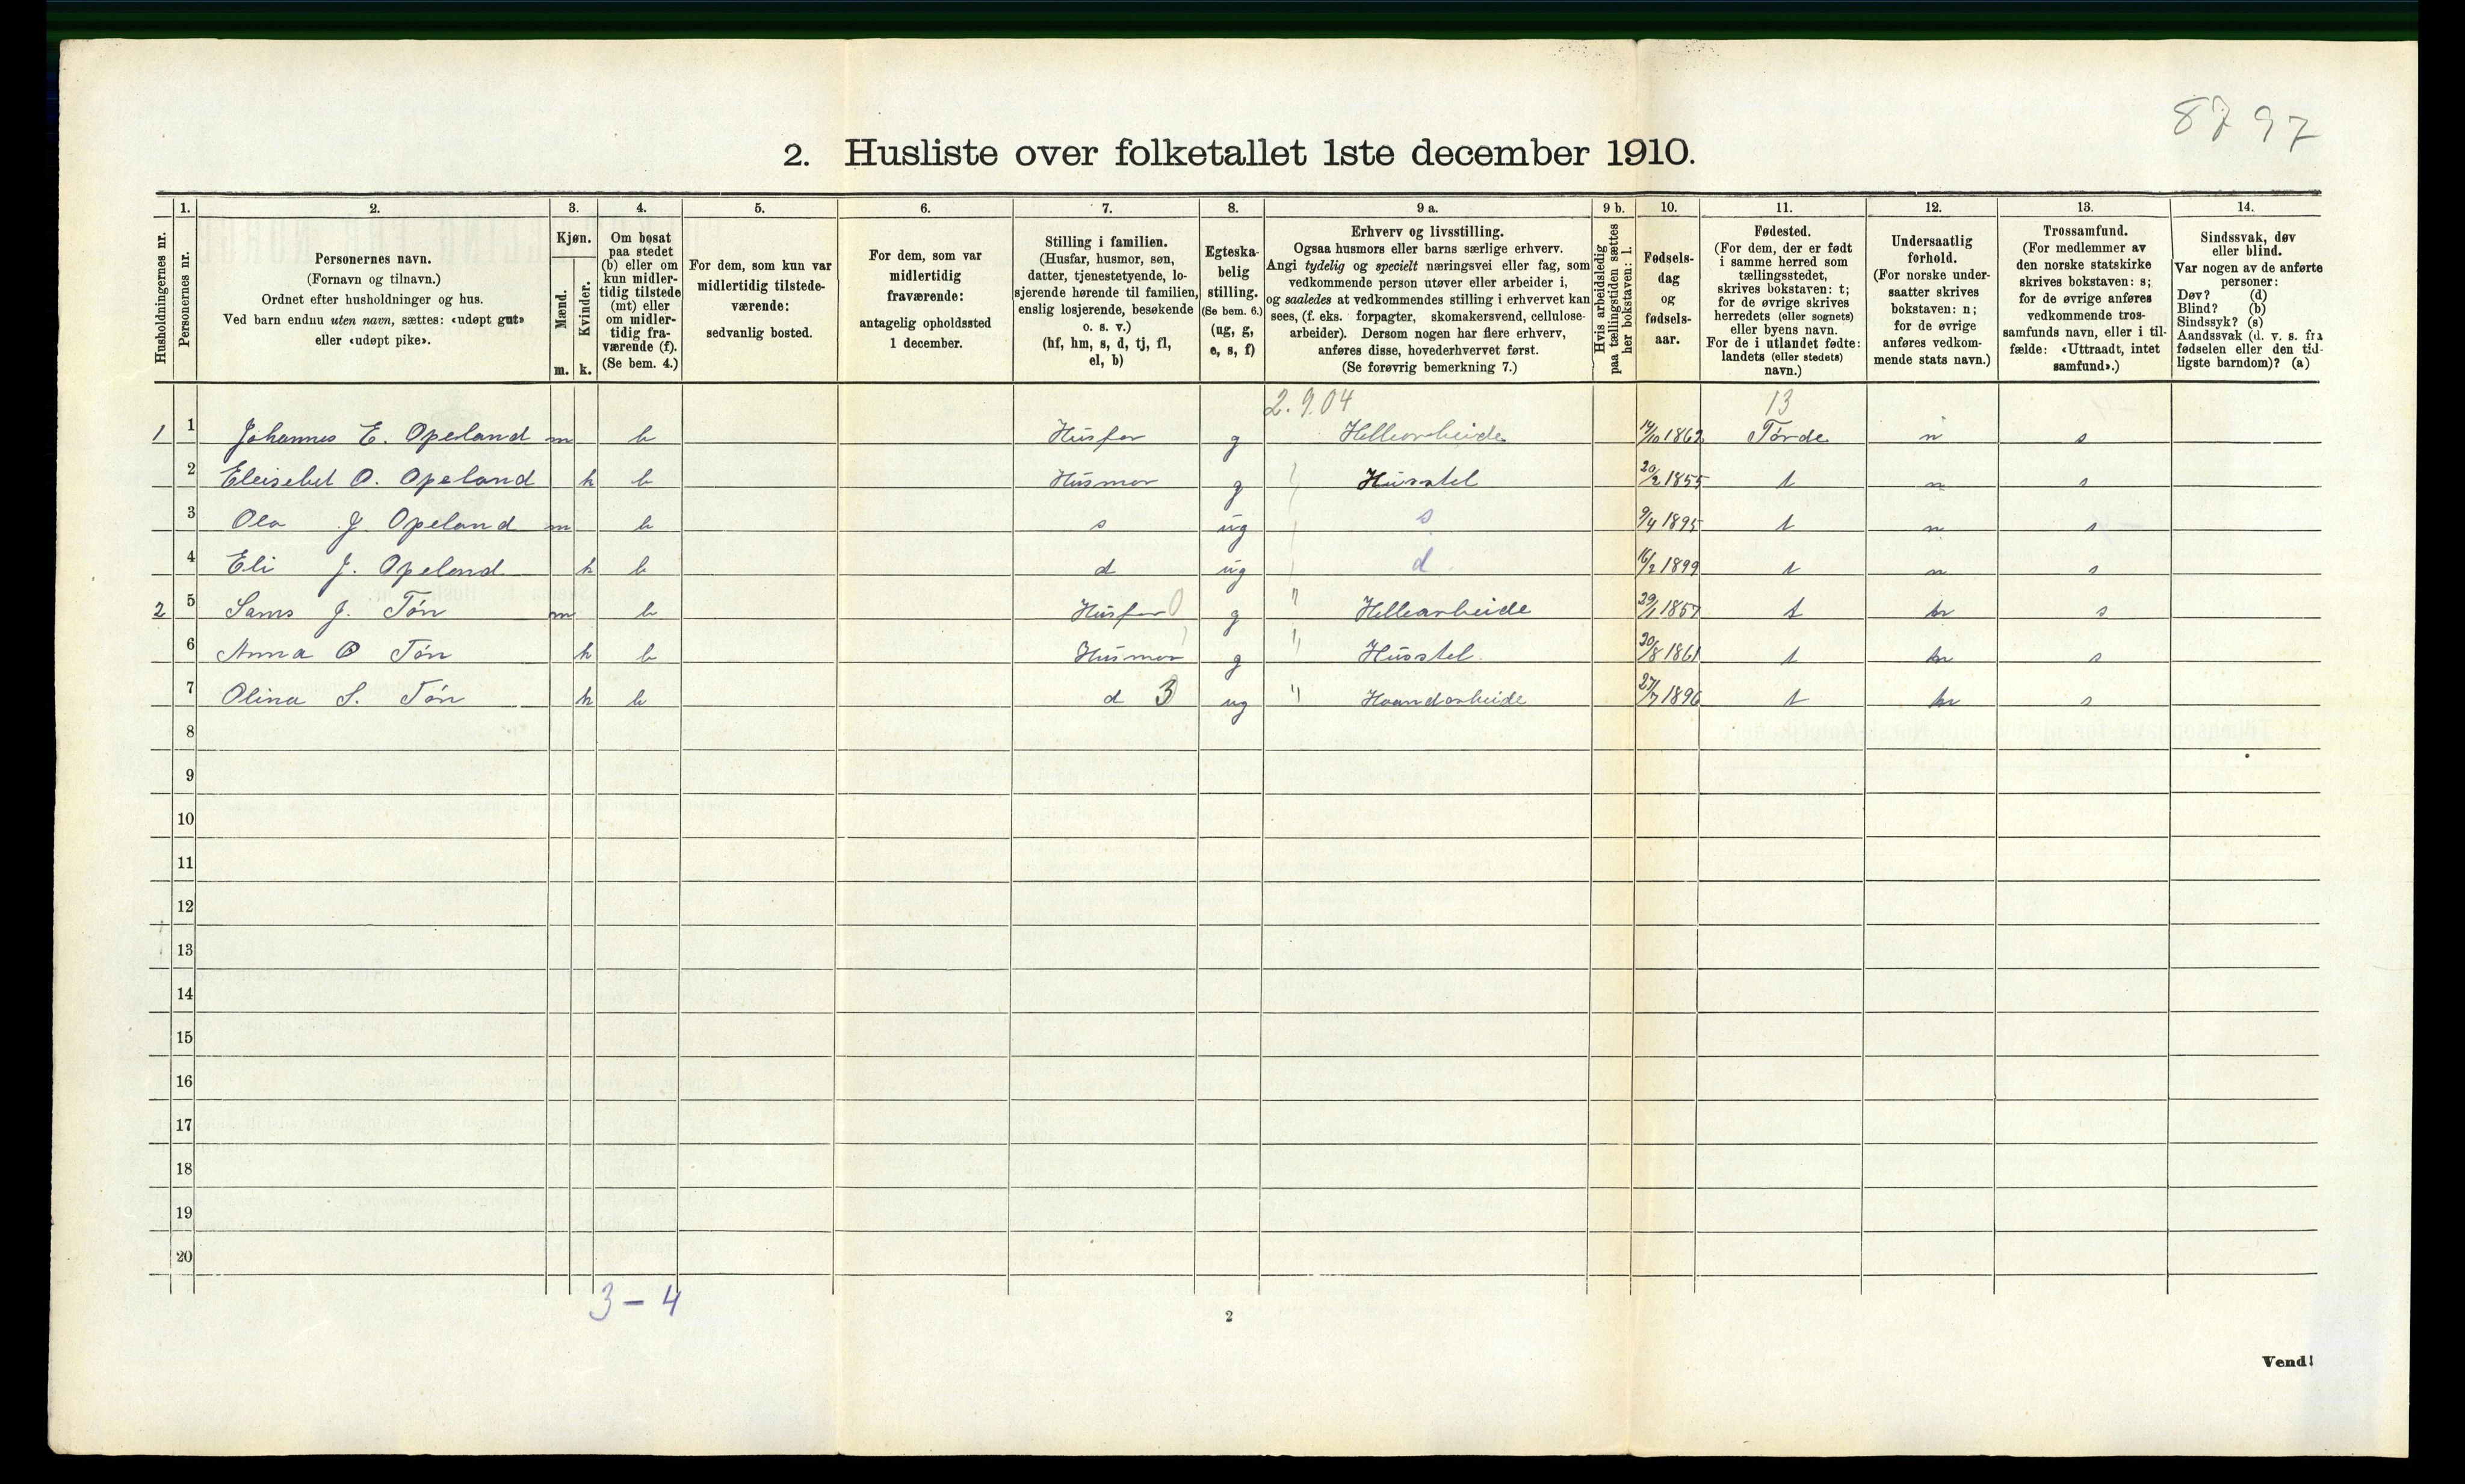 87 97
2. Husliste over folketallet 1ste december 1910.
Husholdningernes nr.
1. Personernes nr.
2. Personernes navn.
(Fornavn og tilnavn.)
Ordnet efter husholdninger og hus.
Ved barn endnu uten navn, sættes: «udøpt gut»
eller «udøpt pike».
3. Kjøn.
Mænd. m.
Kvinder. k.
4. Om bosat
paa stedet
(b) eller om
kun midler-
tidig tilstede
(mt) eller
om midler-
tidig fra-
værende (f).
(Se bem. 4.)
5. For dem, som kun var
midlertidig tilstede-
værende:
sedvanlig bosted.
6. For dem, som var
midlertidig
fraværende:
antagelig opholdssted
1 december.
7. Stilling i familien.
(Husfar, husmor, søn,
datter, tjenestetyende, lo-
sjerende hørende til familien,
enslig losjerende, besøkende
o. s. v.)
(hf, hm, s, d, tj, fl,
el, b)
8. Egteska-
belig
stilling.
(Se bem. 6.)
(ug, g,
e, s, f)
9 a. Erhverv og livsstilling.
Ogsaa husmors eller barns særlige erhverv.
Angi tydelig og specielt næringsvei eller fag, som
vedkommende person utøver eller arbeider i,
og saaledes at vedkommendes stilling i erhvervet kan
sees, (f. eks. forpagter, skomakersvend, cellulose-
arbeider). Dersom nogen har flere erhverv,
anføres disse, hovederhvervet først.
(Se forøvrig bemerkning 7.)
9 b. Hvis arbeidsledig
paa tællingstiden sættes
her bokstaven: l.
10. Fødsels-
dag
og
fødsels-
aar.
11. Fødested.
(For dem, der er født
i samme herred som
tællingsstedet,
skrives bokstaven: t;
for de øvrige skrives
herredets (eller sognets)
eller byens navn.
For de i utlandet fødte:
landets (eller stedets)
navn.)
12. Undersaatlig
forhold.
(For norske under-
saatter skrives
bokstaven: n;
for de øvrige
anføres vedkom-
mende stats navn.)
13. Trossamfund.
(For medlemmer av
den norske statskirke
skrives bokstaven: s;
for de øvrige anføres
vedkommende tros-
samfunds navn, eller i til-
fælde: «Uttraadt, intet
samfund».)
14. Sindssvak, døv
eller blind.
Var nogen av de anførte
personer:
Døv? (d)
Blind? (b)
Sindssyk? (s)
Aandssvak (d. v. s. fra
fødselen eller den tid-
ligste barndom)? (a)
2.9.04 13
1 1 Johannes E. Opeland m b Husfar g Hellearbeide 14/10 1862 Førde n s
2 Eleisebet O. Opeland k b Husmor g Husstel 20/2 1855 t n s
3 Ola J. Opeland m b s ug s 9/4 1895 t n s
4 Eli J. Opeland k b d ug d 16/2 1899 t n s
2 5 Sams J. Tøn m b Husfar 0 g " Hellearbeide 29/1 1857 t s
6 Anna O Tøn k b Husmor g " Husstel 20/8 1861 t s
7 Olina S. Tøn k b d 3 ug " Haandarbeide 27/7 1896 t s
8
9
10
11
12
13
14
15
16
17
18
19
20
3 - 4
2
Vend!